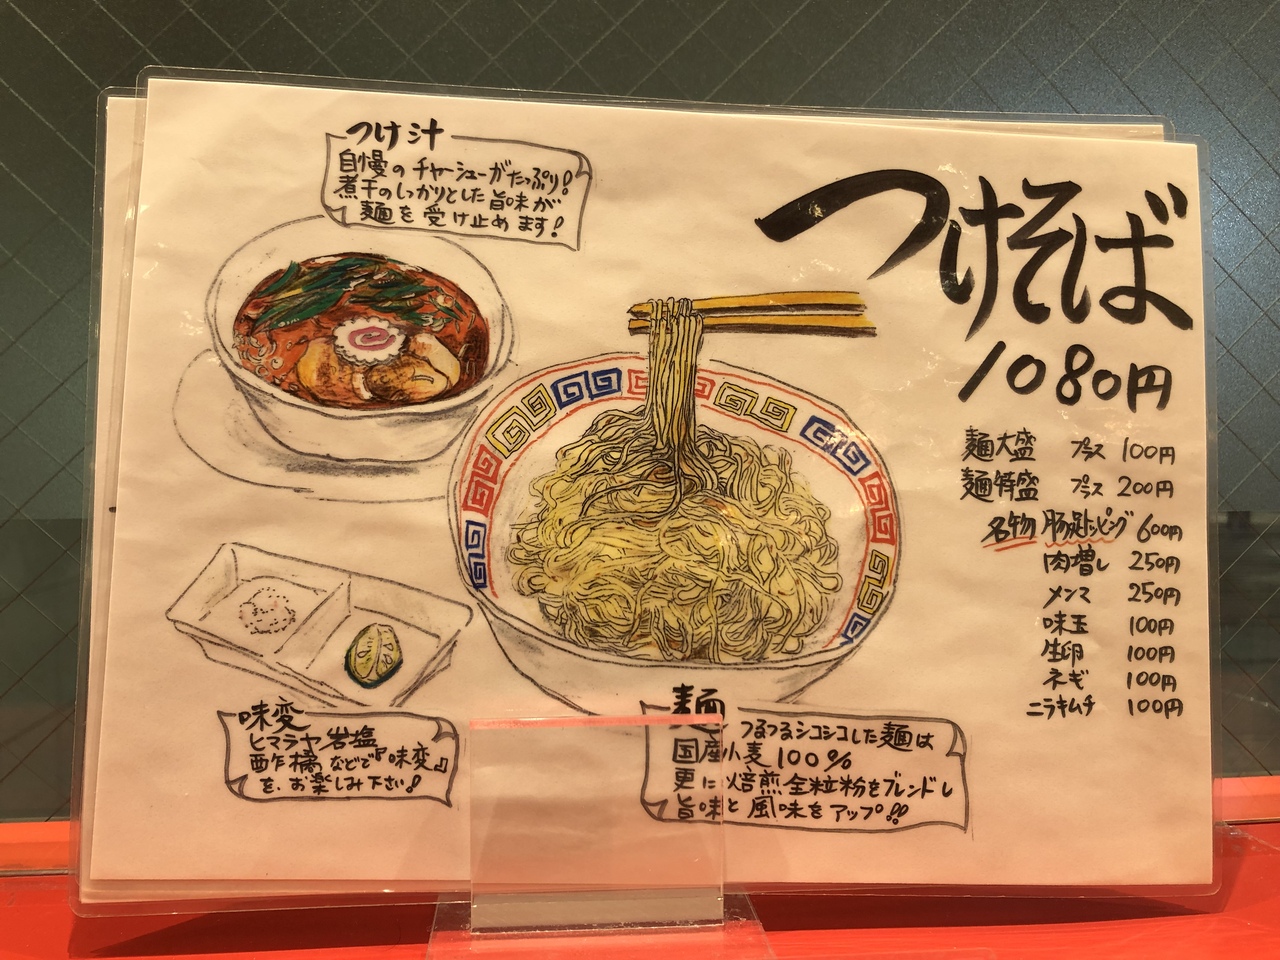 つけ汁
自慢のチャーシューがたっぷり!
煮干のしっかりとした旨味が
麺を受け止めます!
つけそば
1080円
麺大盛 プラス 100円
麺特盛 プラス 200円
名物 豚足トッピング 600円
肉増し 250円
メンマ 250円
味玉 100円
生卵 100円
ネギ 100円
ニラキムチ 100円
味変
ヒマラヤ岩塩
酢橘などで『味変』
を、お楽しみ下さい!
麺
つるつるシコシコした麺は
国産小麦100%
更に焙煎全粒粉をブレンドし
旨味と風味をアップ!!